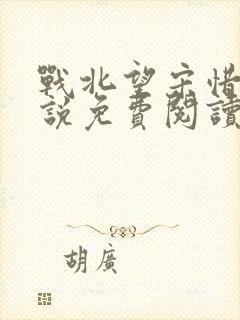 戰北望宋惜
說免費閱讀
胡廣